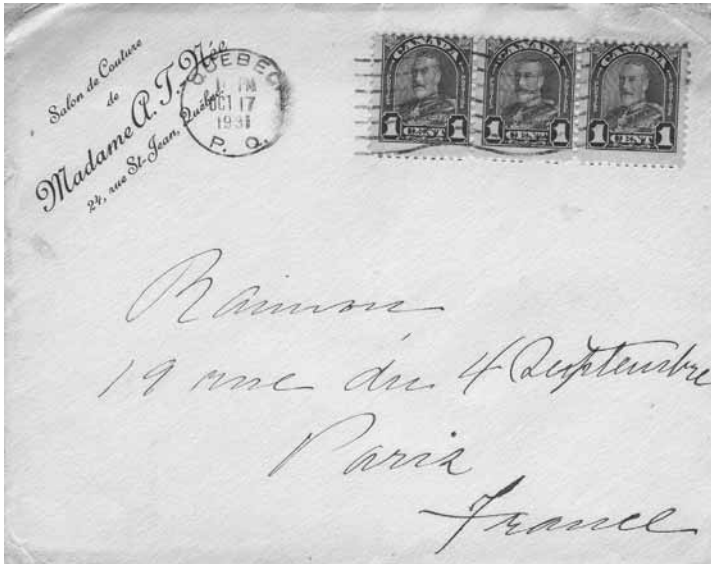 Salon de Couture
de
Madame A. T. Née
24, rue St-Jean, Québec.
QUEBEC
PM
OCT 17
1931
P. Q.
CANADA CANADA CANADA
1 CENT 1 1 CENT 1 1 CENT 1
19 rue du 4 Septembre
Paris
France